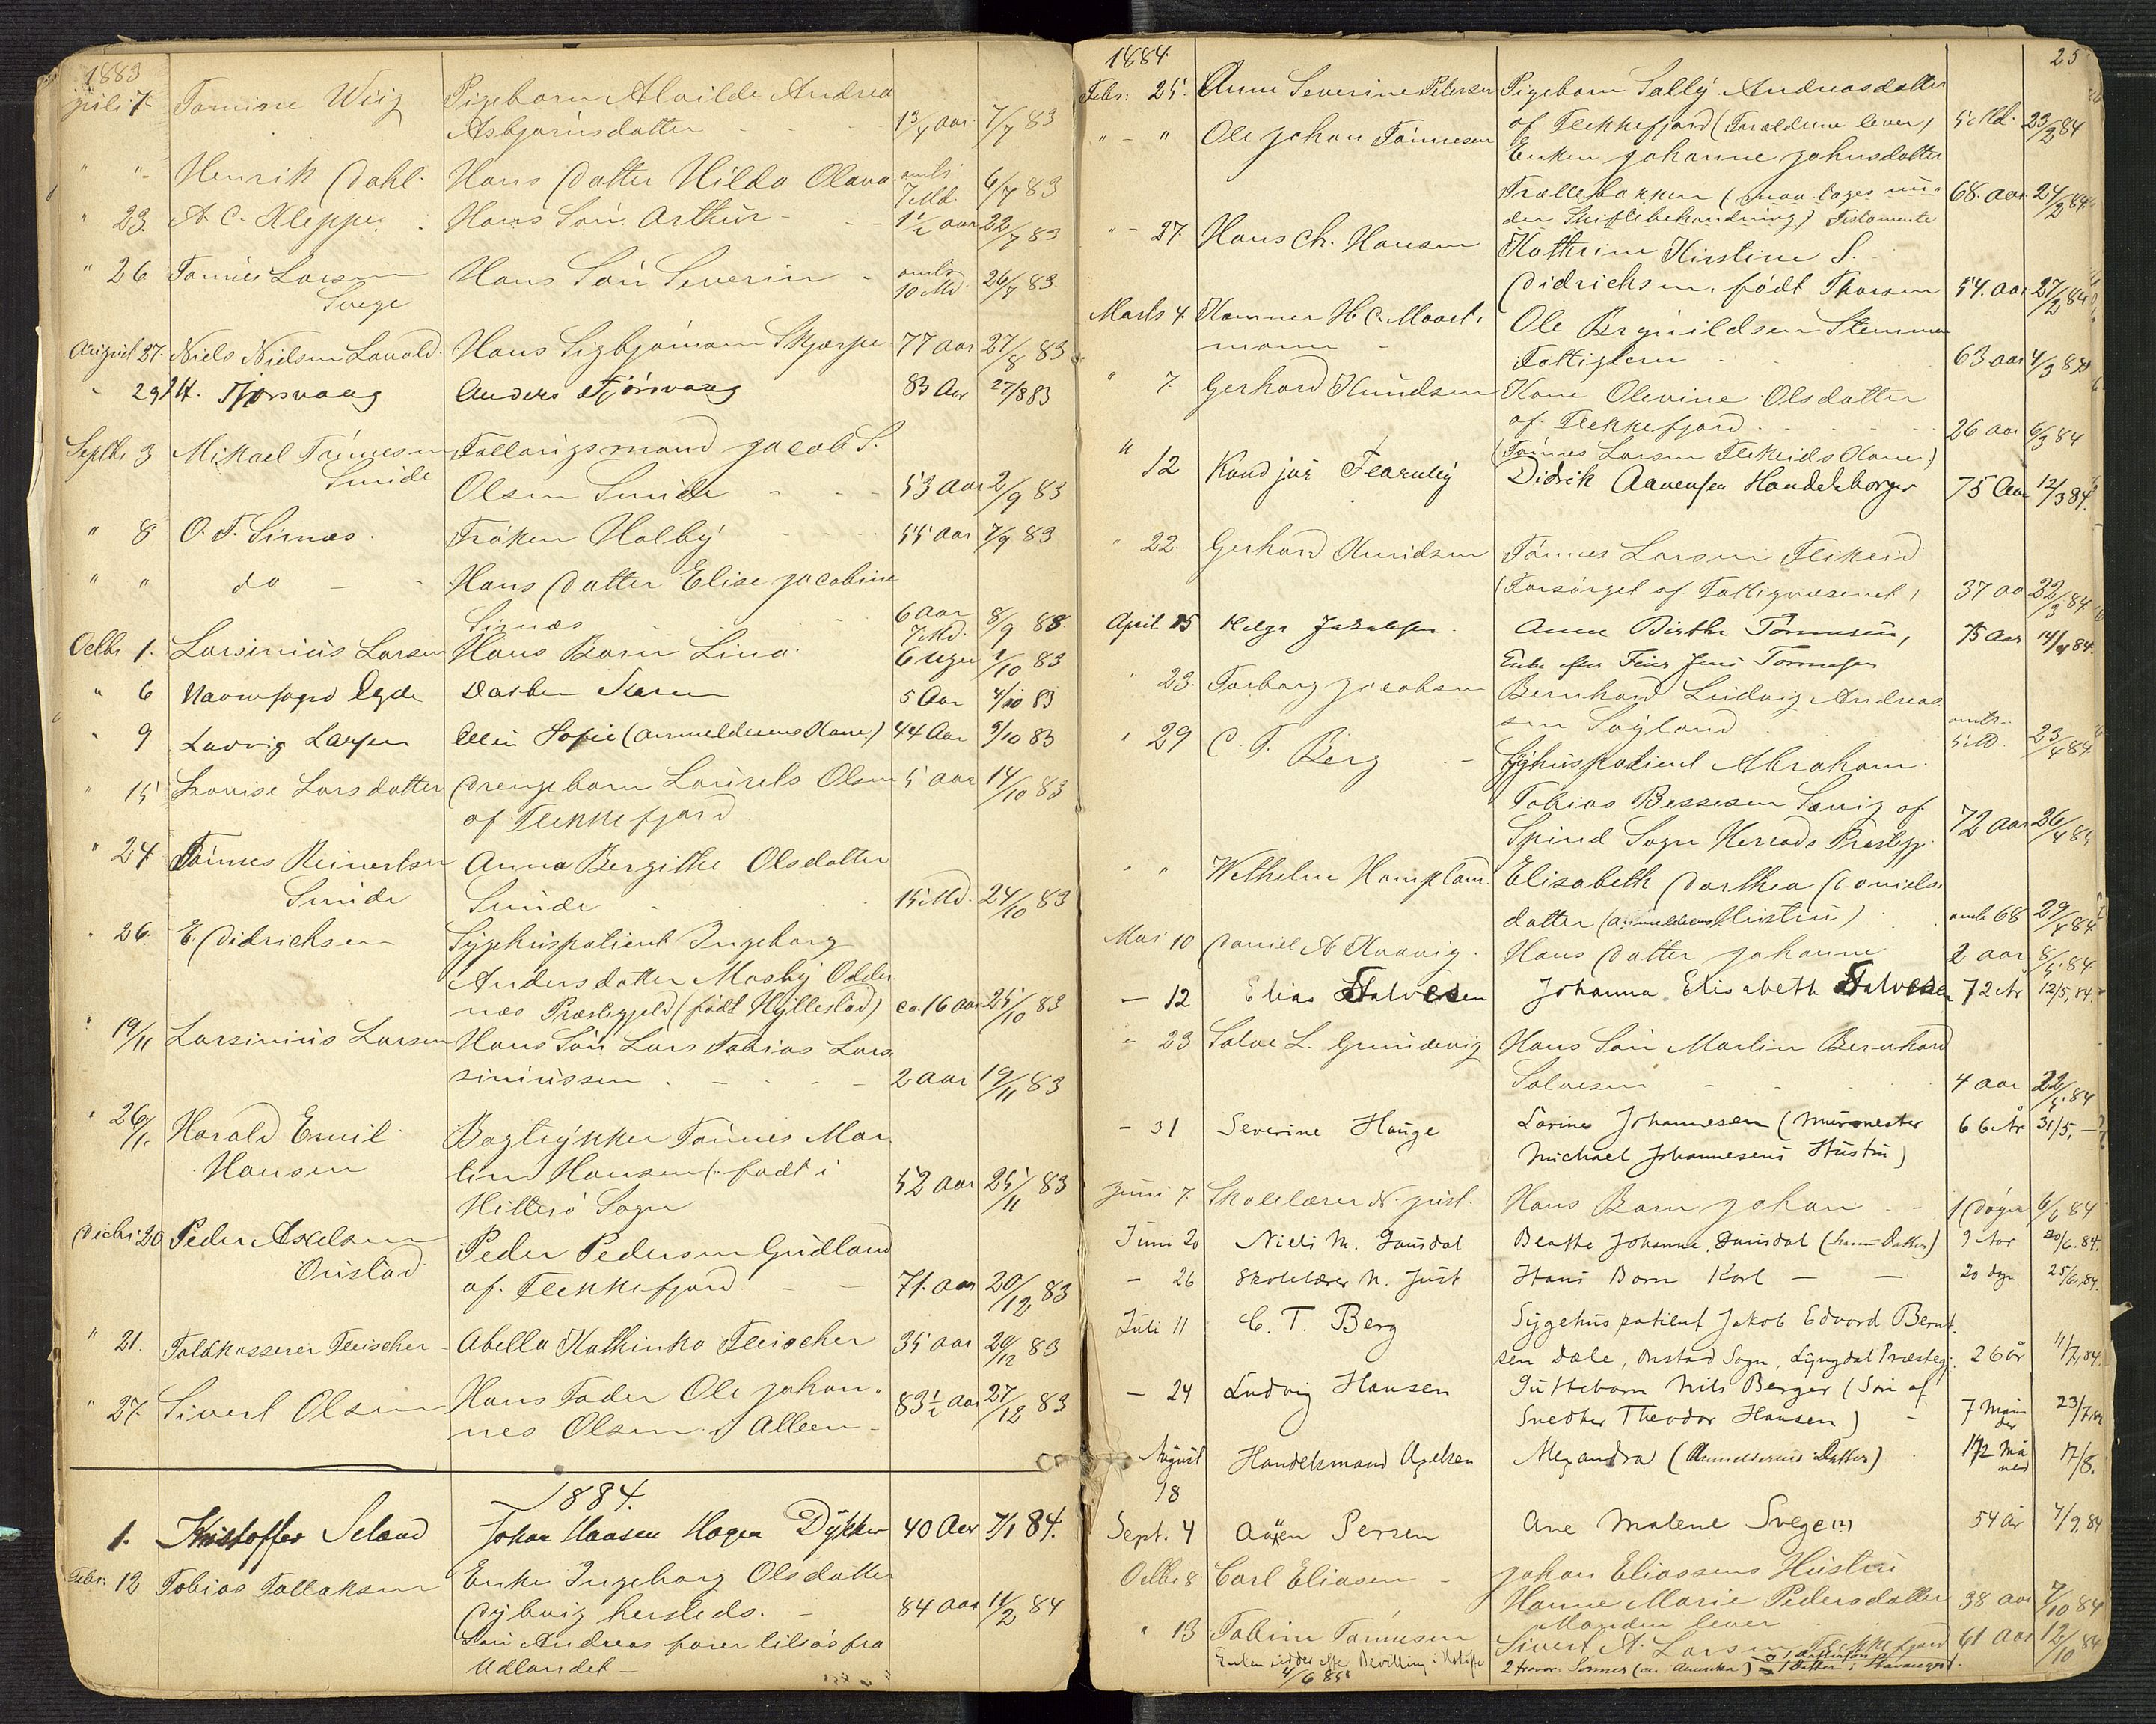 1883
juli 7. Tønnise Wiig Pigebarn Alvilde Andrea
Asbjørnsdatter - - - 1 3/4 aar 7/7 83
" " Henrik Dahl. Hans Datter Hilda Olava. omtr 7 Md 6/7 83
" 23. A C. Kleppe. Hans Søn Arthur - - 1 1/2 aar 22/7 83
" 26 Tønnes Larsen Hans Søn Severin - omtr 10 Md. 26/7 83
Svege
August 27. Niels Nielsen Lavold. Hans Sigbjørnsen Skjærpe 77 aar 27/8 83
" 29 H. Tjørsvaag Anders Tjørsvaag 83 Aar 27/8 83
Septbr 3 Mikael Tønnesen Follaugsmand Jacob S.
Sunde Olsen Sunde - - - 53 aar 2/9 83
" 8 O. T. Sirnæs. Frøken Holby - - - 55 aar 7/9 83
" " do - Hans Datter Elise Jacobine
Sirnæs 6 aar 7 Md. 8/9 83
Octbr 1. Larsinius Larsen Hans Barn Lina. 6 uger 1/10 83
" 6 Havnefoged Egde Datter Karen 5 Aar 4/10 83
" 9 Ludvig Larsen Ellen Sofie (anmelderens Kone) 44 Aar 9/10 83
" 15 Lovise Larsdatter Drengebarn Laurets Olsen 5 aar 14/10 83
af Flekkefjord
" 24 Tønnes Reinertsen Anna Bergithe Olsdatter
Sunde Sunde 15 Md. 24/10 83
" 26. E. Didrichsen Sygehuspatient Ingeborg
Andersdatter Mosby Odder
næs Præstegjeld (født Hyllestad) ca. 16 aar 25/10 83
" 19/11 Larsinius Larsen Hans Søn Lars Tobias Lar
siniussen - - - 2 aar 19/11 83
" 26/11 Harald Emil Bogtrykker Tønnes Mar
Hansen tin Hansen (født i
Hitterø Sogn 52 aar 25/11 83
Decbr. 20 Peder Axelsen Peder Pedersen Gudland
Onstad af Flekkefjord - - 71. aar 20/12 83
" 21. Toldkasserer Fleischer - Abella Kathinka Fleischer 35 aar 20/12 83
" 27. Sivert Olsen Hans Fader Ole Johan
nes Olsen. Alleen - 83 1/2 aar 27/12 83
1884.
1. Kristoffer Seland Johan Hansen Hagen Dykker 40 Aar 7/1 84.
Febr. 12 Tobias Tallaksen Enke Ingeborg Olsdatter
Dybvig hersteds. - 84 aar 11/2 84
Søn Andreas farer tilsøs fra
Udlandet -
1884. 25
Febr: 25. Anne Severine Petersen Pigebarn Sally Andreasdatter
af Flekkefjord (Forældrene lever) 5 Md. 23/2 84
" - " Ole Johan Tønnesen Enken Johanne Johnsdatter
Trællebakken (maa tages un-
der Skiftebehandling) Testamente 68. aar 24/2 84.
" - 27. Hans Ch. Hansen Kathrine Kirstine S.
Didrichsen, født Thorsen 54. aar 27/2 84
Marts 4. Kæmner H. C. Moart- Ole Brynildsen Stemmen
mann - Fattiglem - 63 aar 4/3 84
" 7. Gerhard Knudsen Kone Olevine Olsdatter
af Flekkefjord. 26 aar 6/3 84
(Tønnes Larsen Flikeids Kone)
" 12 Kand jur Fearnley Didrik Aanensen Handelsborger 75 Aar 12/3 84.
" 22. Gerhard Knudsen Tønnes Larsen Flikeid
(Forsørget af Fattigvæsenet) 37 aa 22/3 84
April 15 Helga Jakobsen. Anne Birthe Tønnesen, 75 Aar 14/4 84.
Enke efter Jens Tønnesen
" 23. Torborg Jacobsen Bernhard Ludvig Andreas
sen Løgland omtr. 5 Md. 23/4 84.
" 29 C. T. Berg - Syghuspatient Abraham
Tobias Bessesen Lævig af
Spind Sogn Herads Præstegj. 72 aar 26/4 84
" " Wilhelm Hampland. Elisabeth Dorthea Daniels
datter (anmelderens Hustru) omtr 68 29/4 84
Mai 10 Daniel A Kvavig. Hans Datter Johanne 2 aar 8/5 84
- 12 Elias Salvesen Johanna Elisabeth Salvesen 72 År 12/5, 84.
- 23 Salve L. Grundevig Hans Søn Martin Bernhard
Salvesen - - 4 aar 22/5 84
- 31 Severine Hauge Lorine Johannesen (Murmester 66 År 31/5, -
Michael Johannesens Hustru)
Juni 7. Skolelærer N. Just. Hans Barn Johan - - 1 Døgn 6/6 84
Juni 20 Niels M. Jausdal Beathe Johanne Jausdal (hans Datter) 9 Aar 20/6. 84.
- 26 Skolelærer N. Just Hans Barn Karl - - 20 dgr 25/6, 84.
Juli 11 C. T. Berg Sygehuspatient Jakob Edvard Bernt-
sen Dæle, Onstad Sogn, Lyngdal Præstegj. 26 år 11/7, 84.
- 24 Ludvig Hansen Guttebarn Nils Berger (Søn af
Snedker Theodor Hansen) - 7 Maander 23/7, 84
August 18 Handelsmand Axelsen Alexandra (Anmelderens Datter) 1 1/2 Må ned 17/8.
Sept. 4 Aanen Persen Ane Malene Svege (?) 54 år 4/9. 84
Octbr 8. Carl Eliasen - Johan Eliassens Hustru
Hanne Marie Pedersdatter 38 aar 7/10 84
Manden lever
" 13 Tobine Tønnesen Sivert A. Larsen, Flekkefjord 61 aar 12/10 84
Enken sidder efter Bevilling i Uskifte 2 fravær. Sønner (en i Amerika) 1 Datter i Stavanger.
4/6 85